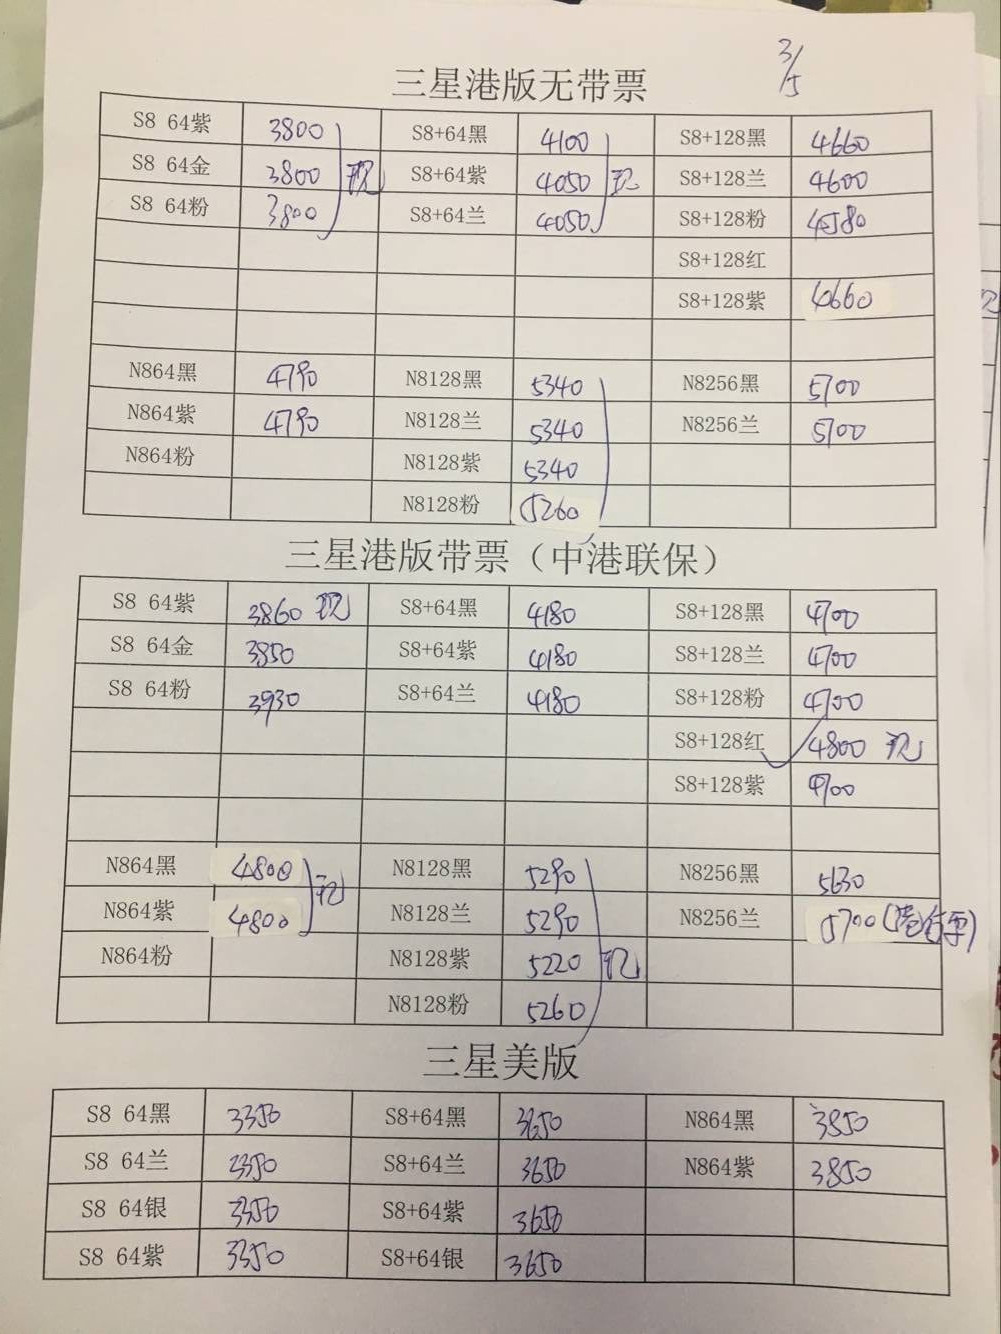 3/15
三星港版无带票
S8 64紫 3800 S8+64黑 4100 S8+128黑 4660
S8 64金 3800 现 S8+64紫 4050 现 S8+128兰 4600
S8 64粉 3800 S8+64兰 4050 S8+128粉 4580
S8+128红
S8+128紫 4660
N864黑 4790 N8128黑 5340 N8256黑 5700
N864紫 4790 N8128兰 5340 N8256兰 5700
N864粉 N8128紫 5340
N8128粉 5260
三星港版带票（中港联保）
S8 64紫 3860 现 S8+64黑 4180 S8+128黑 4700
S8 64金 3850 S8+64紫 4180 S8+128兰 4700
S8 64粉 3930 S8+64兰 4180 S8+128粉 4700
S8+128红 4800 现
S8+128紫 4700
N864黑 4800 现 N8128黑 5290 N8256黑 5630
N864紫 4800 N8128兰 5290 N8256兰 5700(港 票)
N864粉 N8128紫 5220 现
N8128粉 5260
三星美版
S8 64黑 3350 S8+64黑 3650 N864黑 3850
S8 64兰 3350 S8+64兰 3650 N864紫 3850
S8 64银 3350 S8+64紫 3650
S8 64紫 3350 S8+64银 3650